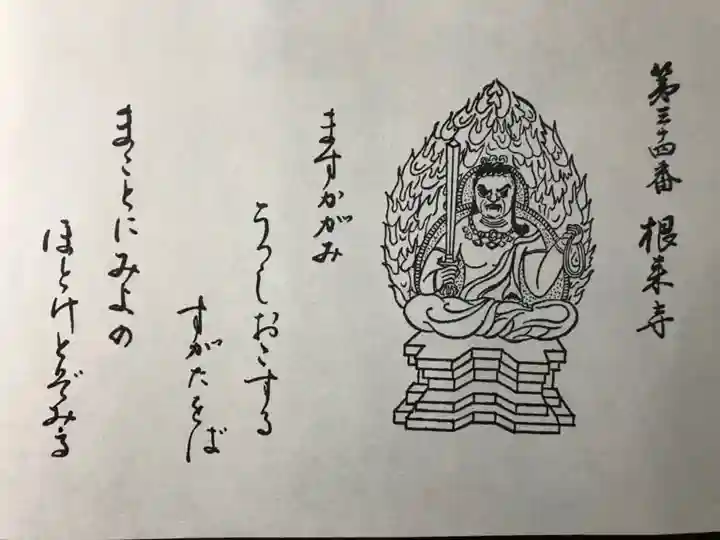 第三十四番 根来寺
ますかがみ
うつしおこする
すがたをば
まことにみよの
ほとけとぞみる